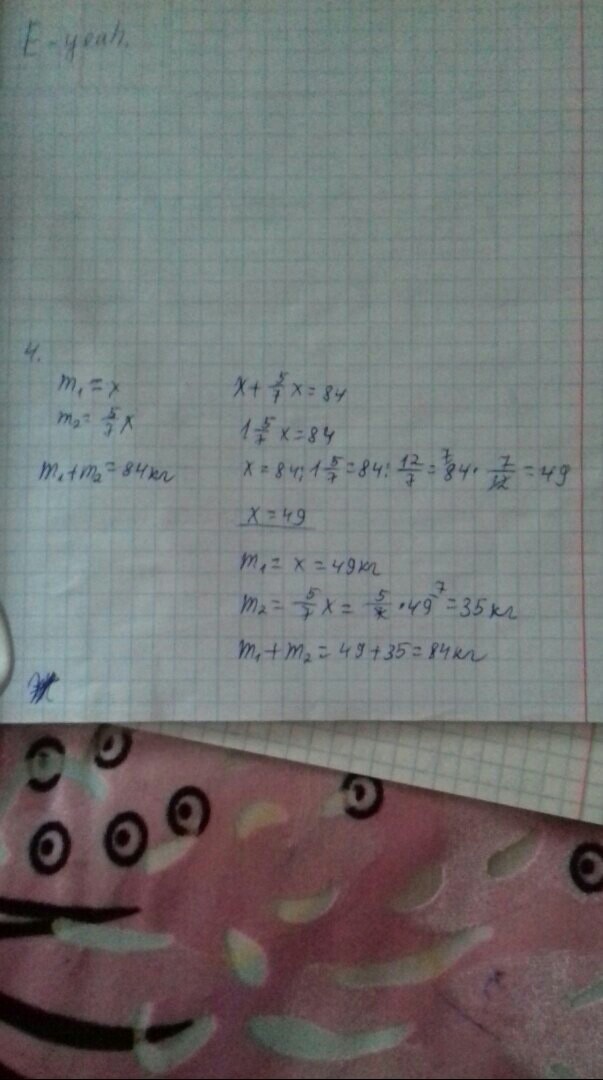 E-yeah.
4.
m₁ = x
m₂ = 5/7 x
m₁+m₂ = 84кг
x + 5/7 x = 84
1 5/7 x = 84
x = 84 : 1 5/7 = 84 : 12/7 = ⁷84 · 7/12 = 49
x = 49
m₁ = x = 49кг
m₂ = 5/7 x = 5/7 · 49⁷ = 35кг
m₁ + m₂ = 49 + 35 = 84кг